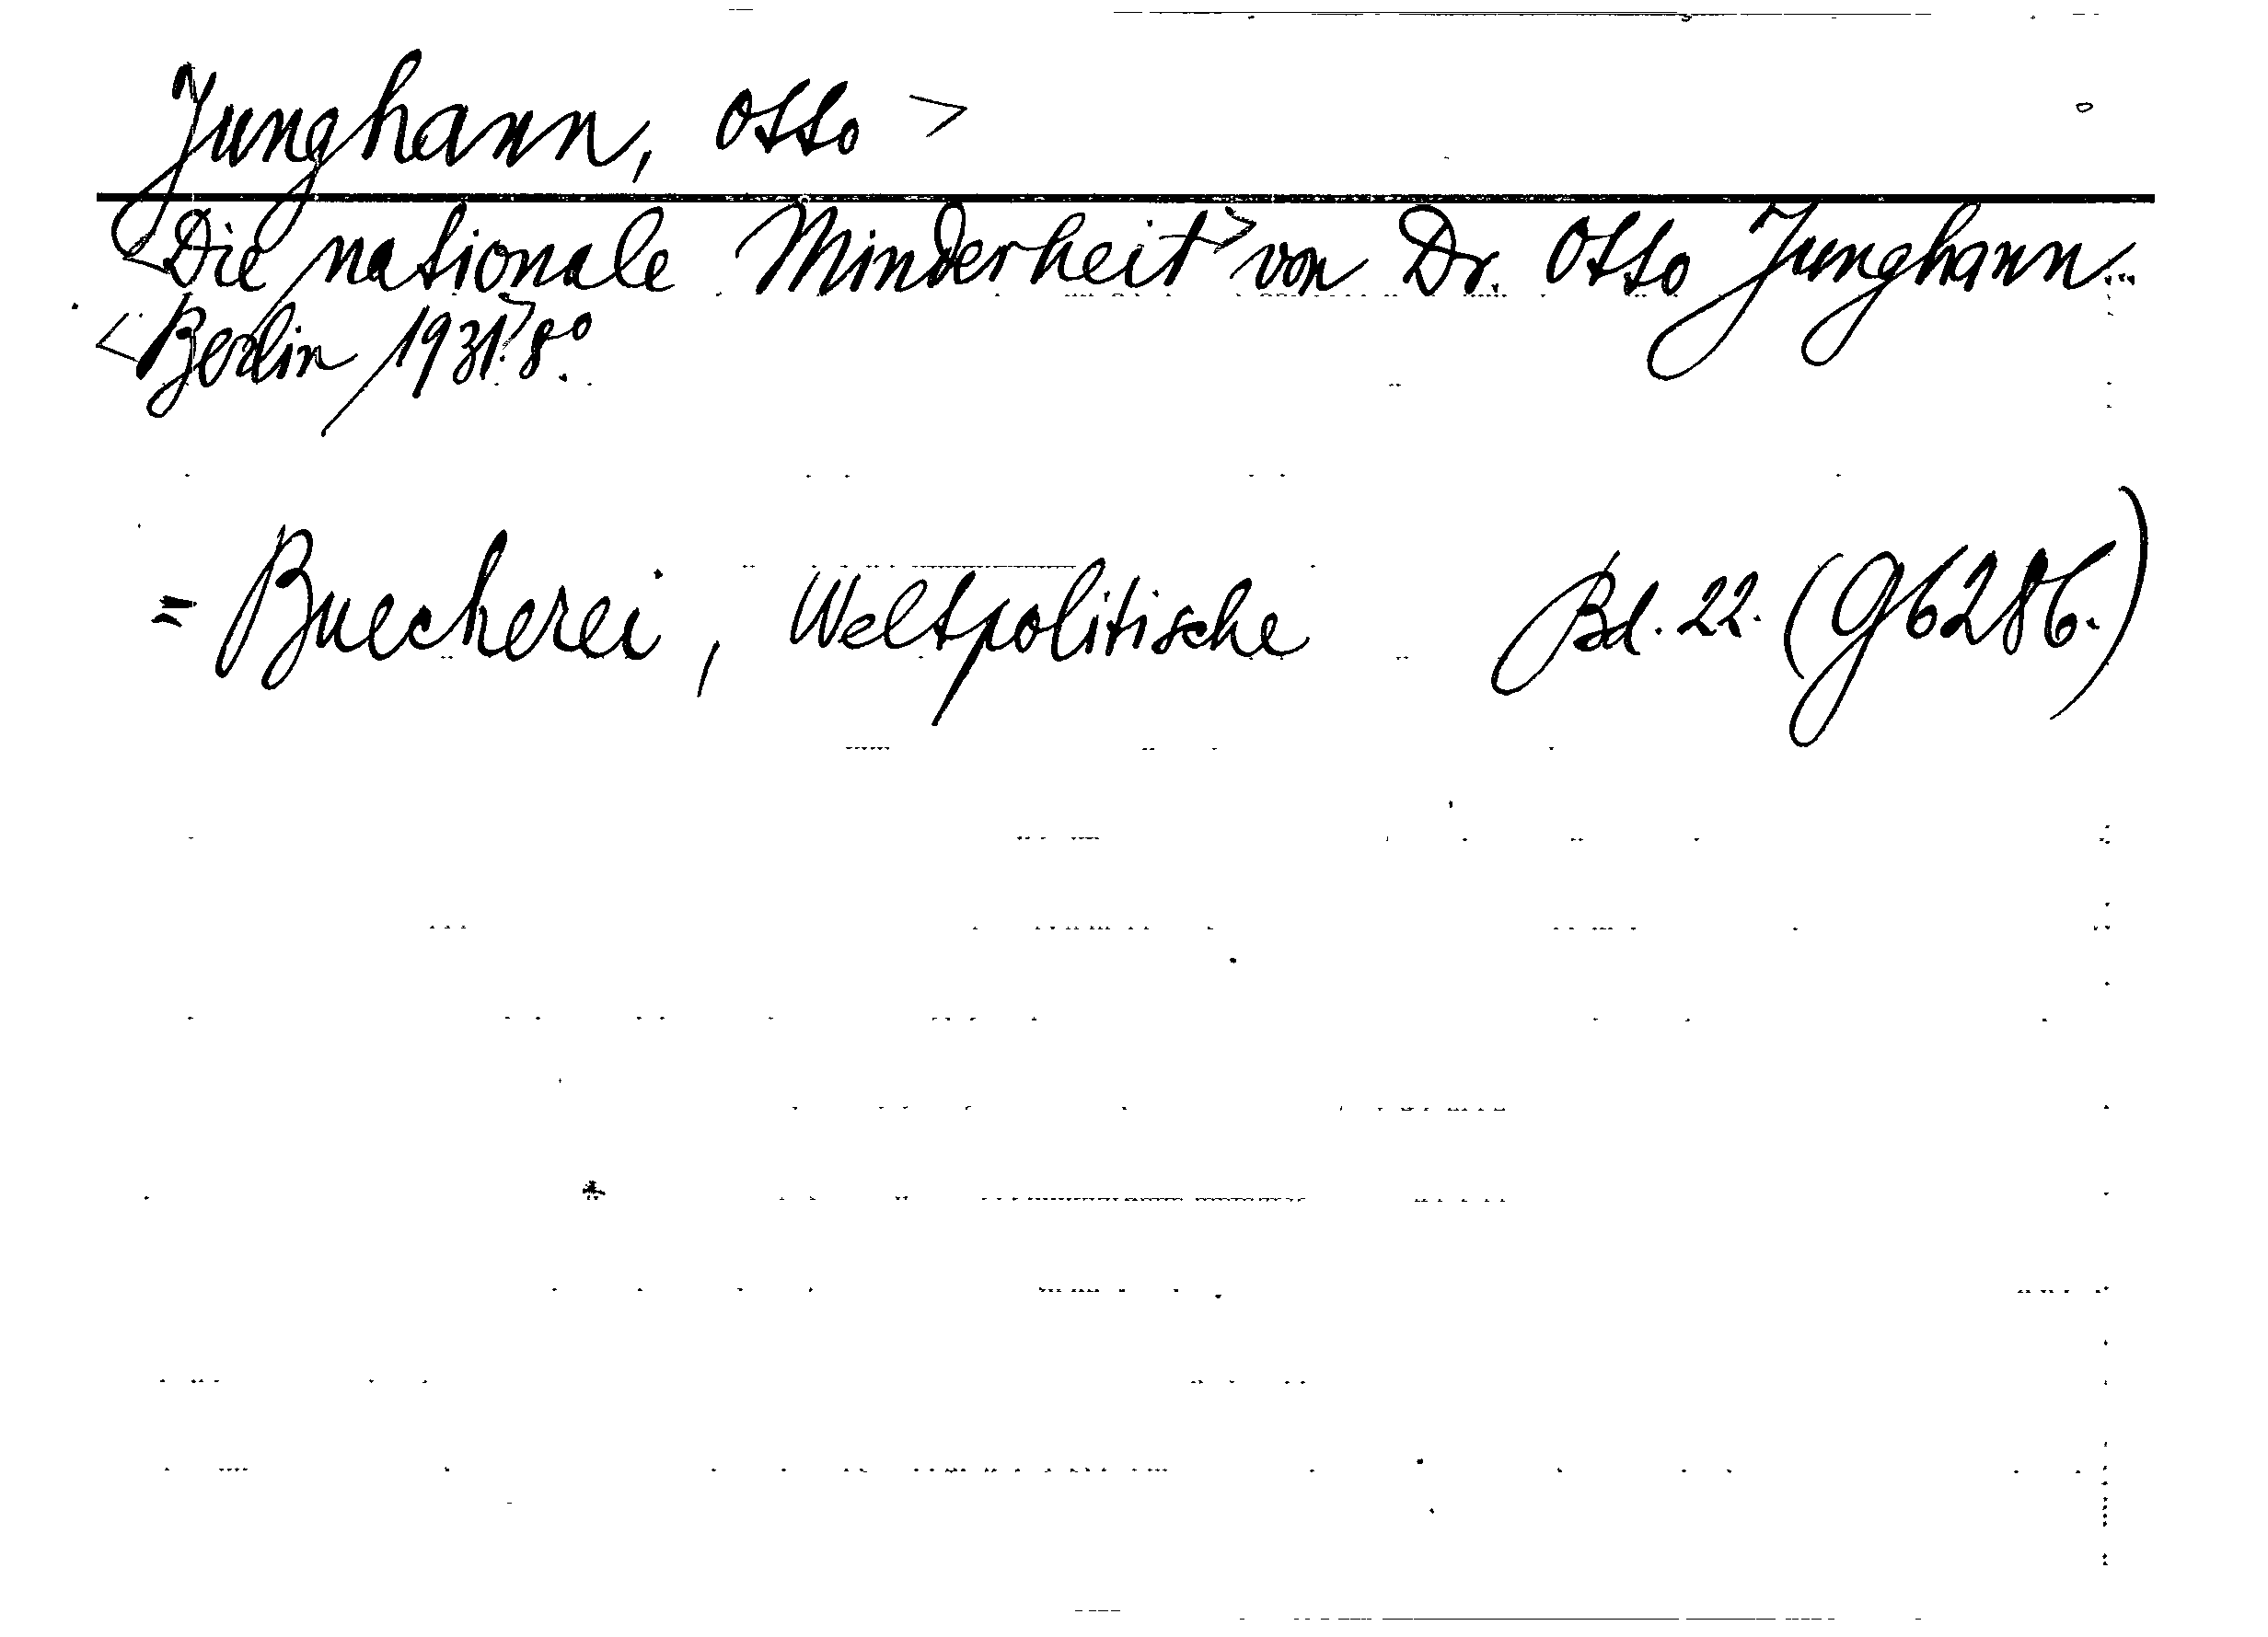 Junghann, Otto >
<Die nationale Minderheit> von Dr. Otto Junghann.
<Berlin 1931.> 8°.
= Buecherei, Weltpolitische Bd. 22. (G6286.)